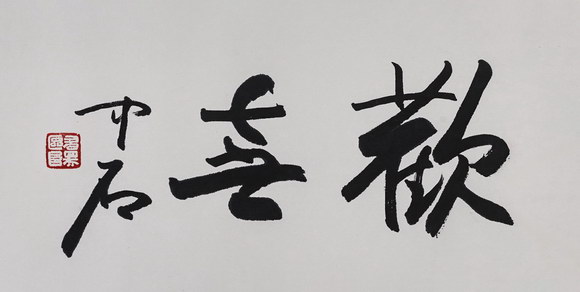 歡喜
中石